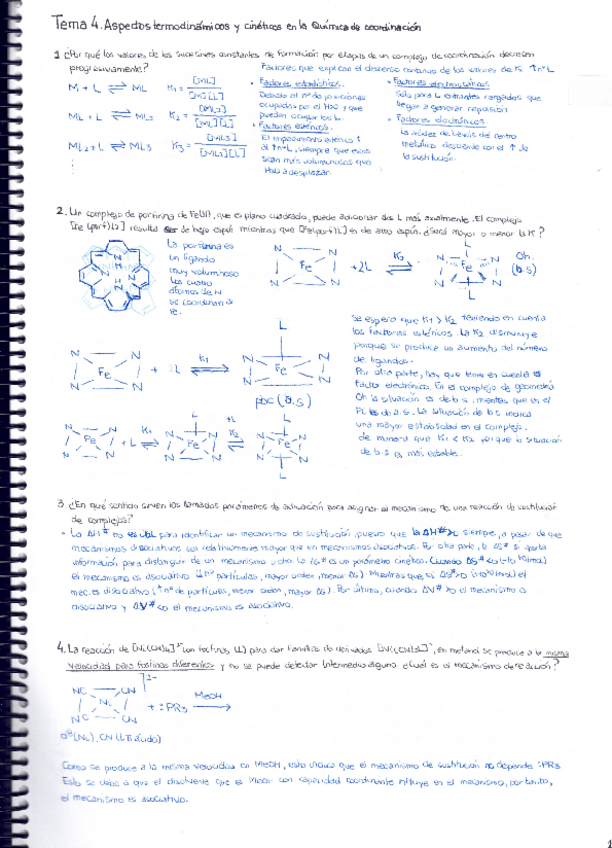 Tema 4. Aspectos termodinámicos y cinéticos en la Química de coordinación
1. ¿Por qué los valores de las sucesivas constantes de formación por etapas de un complejo de coordinación decrecen
progresivamente?
Factores que explican el descenso continuo de los valores de K ↑nºL
M + L ⇌ ML K₁ = [ML] / [M][L]
ML + L ⇌ ML₂ K₂ = [ML₂] / [ML][L]
ML₂ + L ⇌ ML₃ K₃ = [ML₃] / [ML₂][L]
• Factores estadísticos.
Debido al nº de posiciones
ocupadas por el H₂O y que
puedan ocupar los L.
• Factores estéricos.
El impedimento estérico ↑
al ↑nºL, siempre que estos
sean más voluminosos que
H₂O a desplazar.
• Factores electrostáticos:
Sólo para L entrantes cargados que
llegar a generar repulsión
• Factores electrónicos.
La acidez de Lewis del centro
metálico desciende con el ↑ de
la sustitución.
2. Un complejo de porfirina de Fe(II), que es plano cuadrado, puede adicionar dos L más axialmente. El complejo
[Fe(porf)L₂] resulta ser de bajo espín mientras que [Fe(porf)L] es de alto espín. ¿Será mayor o menor la K?
La porfirina es
un ligando
muy voluminoso
Los cuatro
átomos de N
se coordinan al
Fe.
N N N N Fe + 2L ⇌ L N N Fe N N L Oh.
(b.s)
Se espera que K₁ > K₂ teniendo en cuenta
los factores estéricos. La K₂ disminuye
porque se produce un aumento del número
de ligandos.
Por otra parte, hay que tener en cuenta el
factor electrónico. En el complejo de geometría
Oh la situación es de b.s. mientras que en el
es de a.s. La situación de b.s indica
una mayor estabilidad en el complejo.
de manera que K₁ < K₂ porque la situación
de b.s es más estable.
N N N N Fe + L ⇌ K₁ L N N Fe N N
pbc (a.s)
N N N N Fe + L ⇌ K₁ L N N Fe N N +L ⇌ K₂ L N N Fe N N L
3. ¿En qué sentido sirven los llamados parámetros de activación para asignar el mecanismo de una reacción de sustitución
de complejos?
• La ΔH≠ no es útil para identificar un mecanismo de sustitución, puesto que la ΔH≠ > siempre, a pesar de que
mecanismos disociativos son relativamente mayor que en mecanismos asociativos. Por otra parte, la ΔS≠ sí aporta
información para distinguir de un mecanismo u otro. La ΔS≠ es un parámetro cinético. Cuando ΔS≠ <0
el mecanismo es asociativo (↓nº partículas, mayor orden, menor ΔS). Mientras que si ΔS≠>0 el
mec. es disociativo (↑nº de partículas, menor orden, mayor ΔS). Por último, cuando ΔV≠ >0 el mecanismo es
disociativo y ΔV≠ <0 el mecanismo es asociativo.
4. La reacción de [Ni(CN)₄]²⁻ con fosfinas (L) para dar familias de derivados [Ni(CN)₃L]⁻, en metanol se produce a la misma
velocidad para fosfinas diferentes y no se puede detectar intermedio alguno. ¿Cuál es el mecanismo de reacción?
NC CN Ni NC CN ]²⁻ + :PR₃ MeOH →
d⁸(Ni), CN (π ácido)
Como se produce a la misma velocidad en MeOH, esto indica que el mecanismo de sustitución no depende :PR₃
Esto se debe a que el disolvente que es MeOH con capacidad coordinante influye en el mecanismo, por tanto,
el mecanismo es asociativo.
1